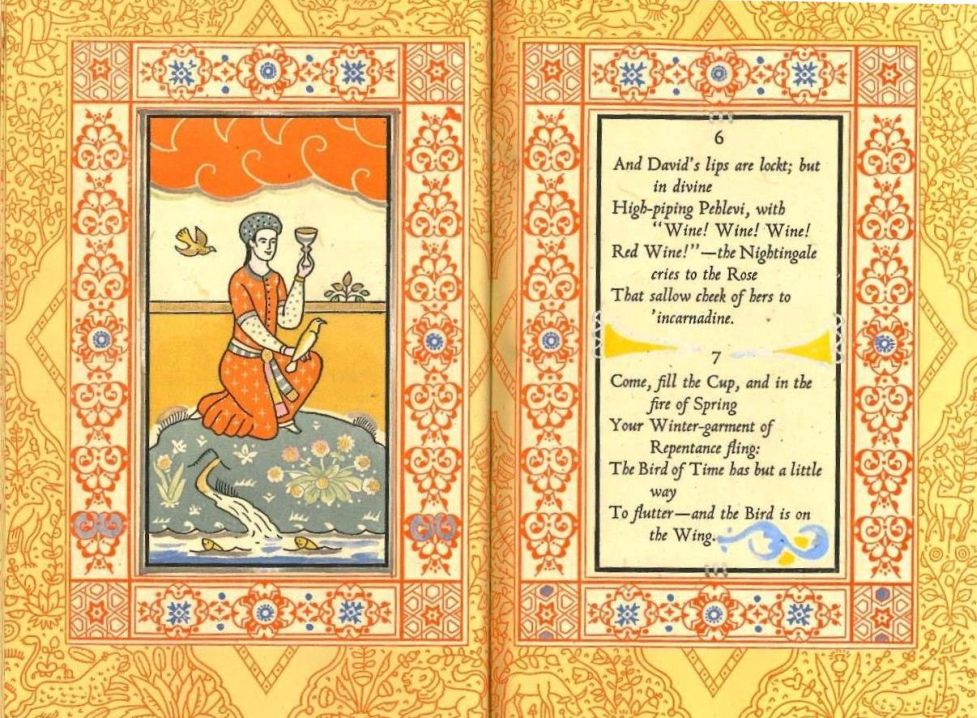 6
And David's lips are lockt; but
in divine
High-piping Pehlevi, with
"Wine! Wine! Wine!
Red Wine!"—the Nightingale
cries to the Rose
That sallow cheek of hers to
'incarnadine.
7
Come, fill the Cup, and in the
fire of Spring
Your Winter-garment of
Repentance fling:
The Bird of Time has but a little
way
To flutter—and the Bird is on
the Wing.